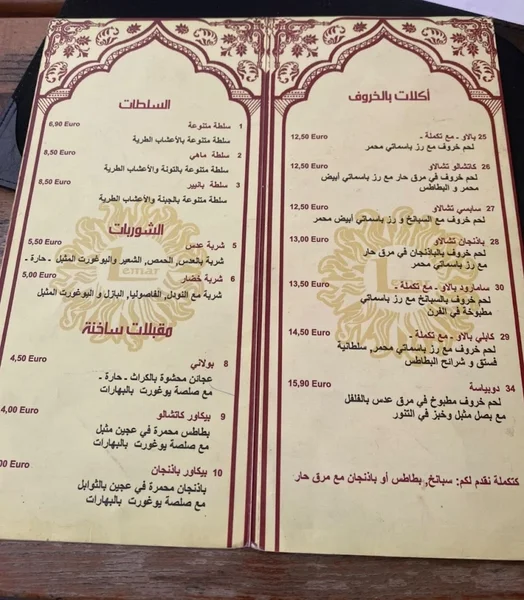 أكلات بالخروف
25 بالاو - مع تكملة -
12,50 Euro
لحم خروف مع رز باسماتي محمر
26 كاتشالو تشالاو
12,50 Euro
لحم خروف في مرق حار مع رز باسماتي أبيض
محمر و البطاطس
27 سابسي تشالاو
12,50 Euro
لحم خروف مع السبانخ و رز باسماتي أبيض محمر
28 باذنجان تشالاو
13,00 Euro
لحم خروف بالباذنجان في مرق حار
مع رز باسماتي محمر
30 سامارود بالاو - مع تكملة -
13,50 Euro
لحم خروف بالسبانخ مع رز باسماتي
مطبوخة في الفرن
29 كابلي بالاو - مع تكملة -
14,50 Euro
لحم خروف مع رز باسماتي محمر, سلطانية
فستق و شرائح البطاطس
34 دوبياسة
15,90 Euro
لحم خروف مطبوخ في مرق عدس بالفلفل
مع بصل مثبل وخبز في التنور
كتكملة نقدم لكم: سبانخ, بطاطس أو باذنجان مع مرق حار
السلطات
1 سلطة متنوعة
6,90 Euro
سلطة متنوعة بالأعشاب الطرية
2 سلطة ماهي
8,50 Euro
سلطة متنوعة بالتونة والأعشاب الطرية
3 سلطة بانيير
8,50 Euro
سلطة متنوعة بالجبنة والأعشاب الطرية
الشوربات
5 شربة عدس
5,50 Euro
شربة بالعدس, الحمص, الشعير واليوغورت المثبل - حارة -
6 شربة خضار
5,00 Euro
شربة مع النودل, الفاصوليا, البازل و اليوغورت المثبل
Lemar
مقبلات ساخنة
8 بولاني
4,50 Euro
عجائن محشوة بالكراث - حارة -
مع صلصة يوغورت بالبهارات
9 بيكاور كاتشالو
4,00 Euro
بطاطس محمرة في عجين مثبل
مع صلصة يوغورت بالبهارات
10 بيكاور باذنجان
00 Euro
باذنجان محمرة في عجين بالثوابل
مع صلصة يوغورت بالبهارات